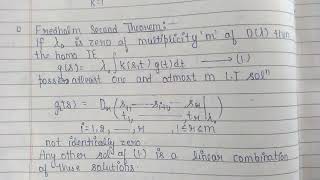 K=1
Fredholm Second Theorem:-
If λ₀ is zero of multiplicity 'm' of D(λ) then
the homo IE
g(s) = λ₀∫k(s,t) g(t)dt → (1.)
posses atleast one and atmost m L.I solⁿ
gᵢ(s) = Dᵣ(s₁, ... sᵢ₊₁, ... sᵣ
t₁, ... tᵣ
i=1,2, ..., r, 1≤r≤m
not identically zero.
Any other sol of (1.) is a linear combination
of these solutions.